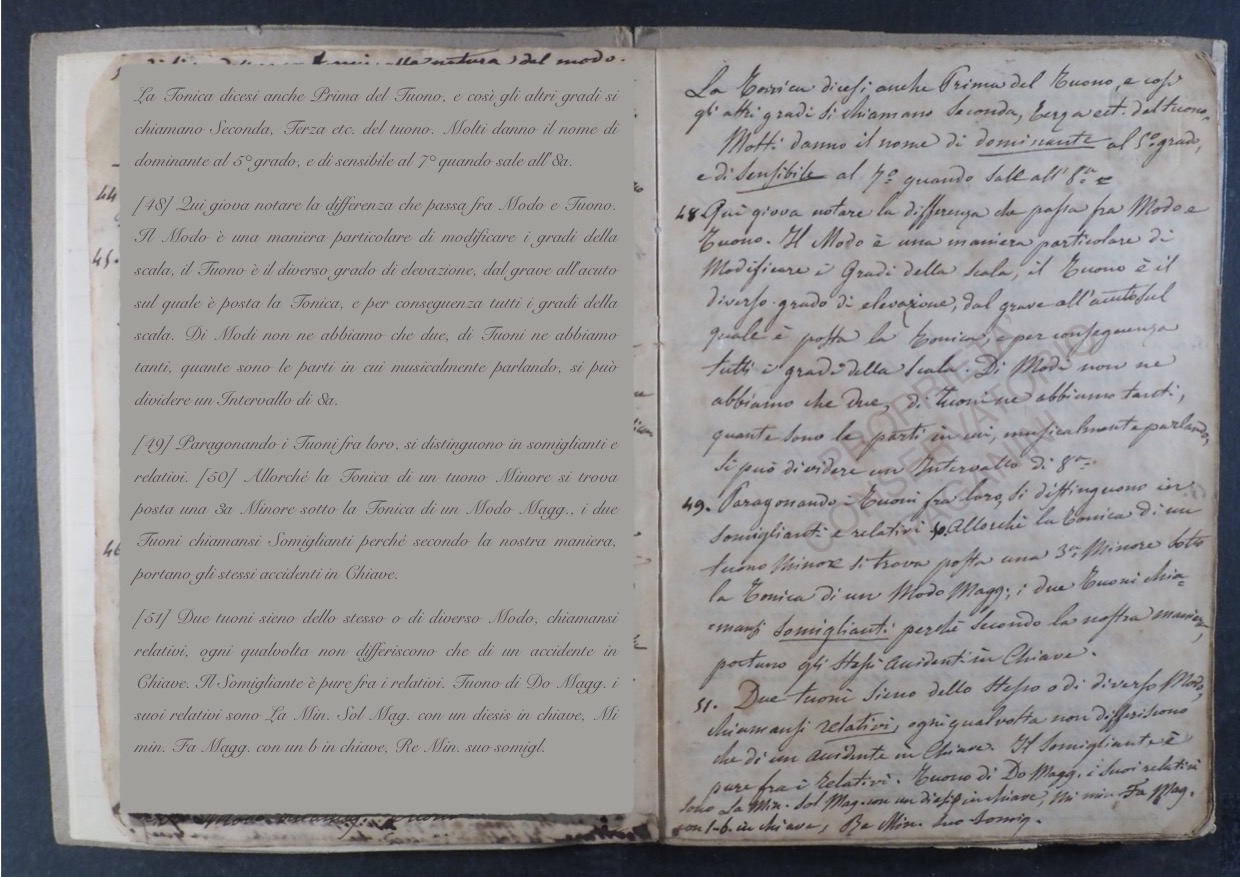 alla natura del modo.
La Tonica dicesi anche Prima del Tuono, e così gli altri gradi si
chiamano Seconda, Terza etc. del tuono. Molti danno il nome di
dominante al 5° grado, e di sensibile al 7° quando sale all'8a.
[48] Qui giova notare la differenza che passa fra Modo e Tuono.
Il Modo è una maniera particolare di modificare i gradi della
scala, il Tuono è il diverso grado di elevazione, dal grave all'acuto
sul quale è posta la Tonica, e per conseguenza tutti i gradi della
scala. Di Modi non ne abbiamo che due, di Tuoni ne abbiamo
tanti, quante sono le parti in cui musicalmente parlando, si può
dividere un Intervallo di 8a.
[49] Paragonando i Tuoni fra loro, si distinguono in somiglianti e
relativi. [50] Allorché la Tonica di un tuono Minore si trova
posta una 3a Minore sotto la Tonica di un Modo Magg., i due
Tuoni chiamansi Somiglianti perché secondo la nostra maniera,
portano gli stessi accidenti in Chiave.
[51] Due tuoni sieno dello stesso o di diverso Modo, chiamansi
relativi, ogni qualvolta non differiscono che di un accidente in
Chiave. Il Somigliante è pure fra i relativi. Tuono di Do Magg. i
suoi relativi sono La Min. Sol Mag. con un diesis in chiave, Mi
min. Fa Magg. con un b in chiave, Re Min. suo somigl.
44
45.
46
La Tonica dicesi anche Prima del Tuono, e così
gli altri gradi si chiamano Seconda, Terza ect. del tuono.
Molti danno il nome di dominante al 5° grado,
e di sensibile al 7° quando sale all'8a
48. Qui giova notare la differenza che passa fra Modo e
Tuono. Il Modo è una maniera particolare di
Modificare i Gradi della Scala, il Tuono è il
diverso grado di elevazione, dal grave all'acuto sul
quale è posta la Tonica, e per conseguenza
tutti i gradi della Scala. Di Modi non ne
abbiamo che due, di tuoni ne abbiamo tanti,
quante sono le parti in cui, musicalmente parlando,
si può dividere un Intervallo di 8a.
49. Paragonando i Tuoni fra loro, si distinguono in
somiglianti e relativi 50. Allorchè la Tonica di un
tuono Minore si trova posta una 3a Minore sotto
la Tonica di un Modo Magg; i due Tuoni chia=
=mansi somiglianti perchè secondo la nostra maniera,
portano gli stessi accidenti in Chiave.
51. Due tuoni sieno dello stesso o di diverso Modo,
chiamansi relativi, ogni qual volta non differiscono
che di un accidente in Chiave. Il Somigliante è
pure fra i relativi. Tuono di Do Magg. i suoi relativi
sono La Min. Sol Mag. con un diesis in chiave, Mi min. Fa Mag.
con 1 b. in chiave, Re Min. suo Somig.
PROPRIETÀ
CONSERVATORIO
PAGANINI